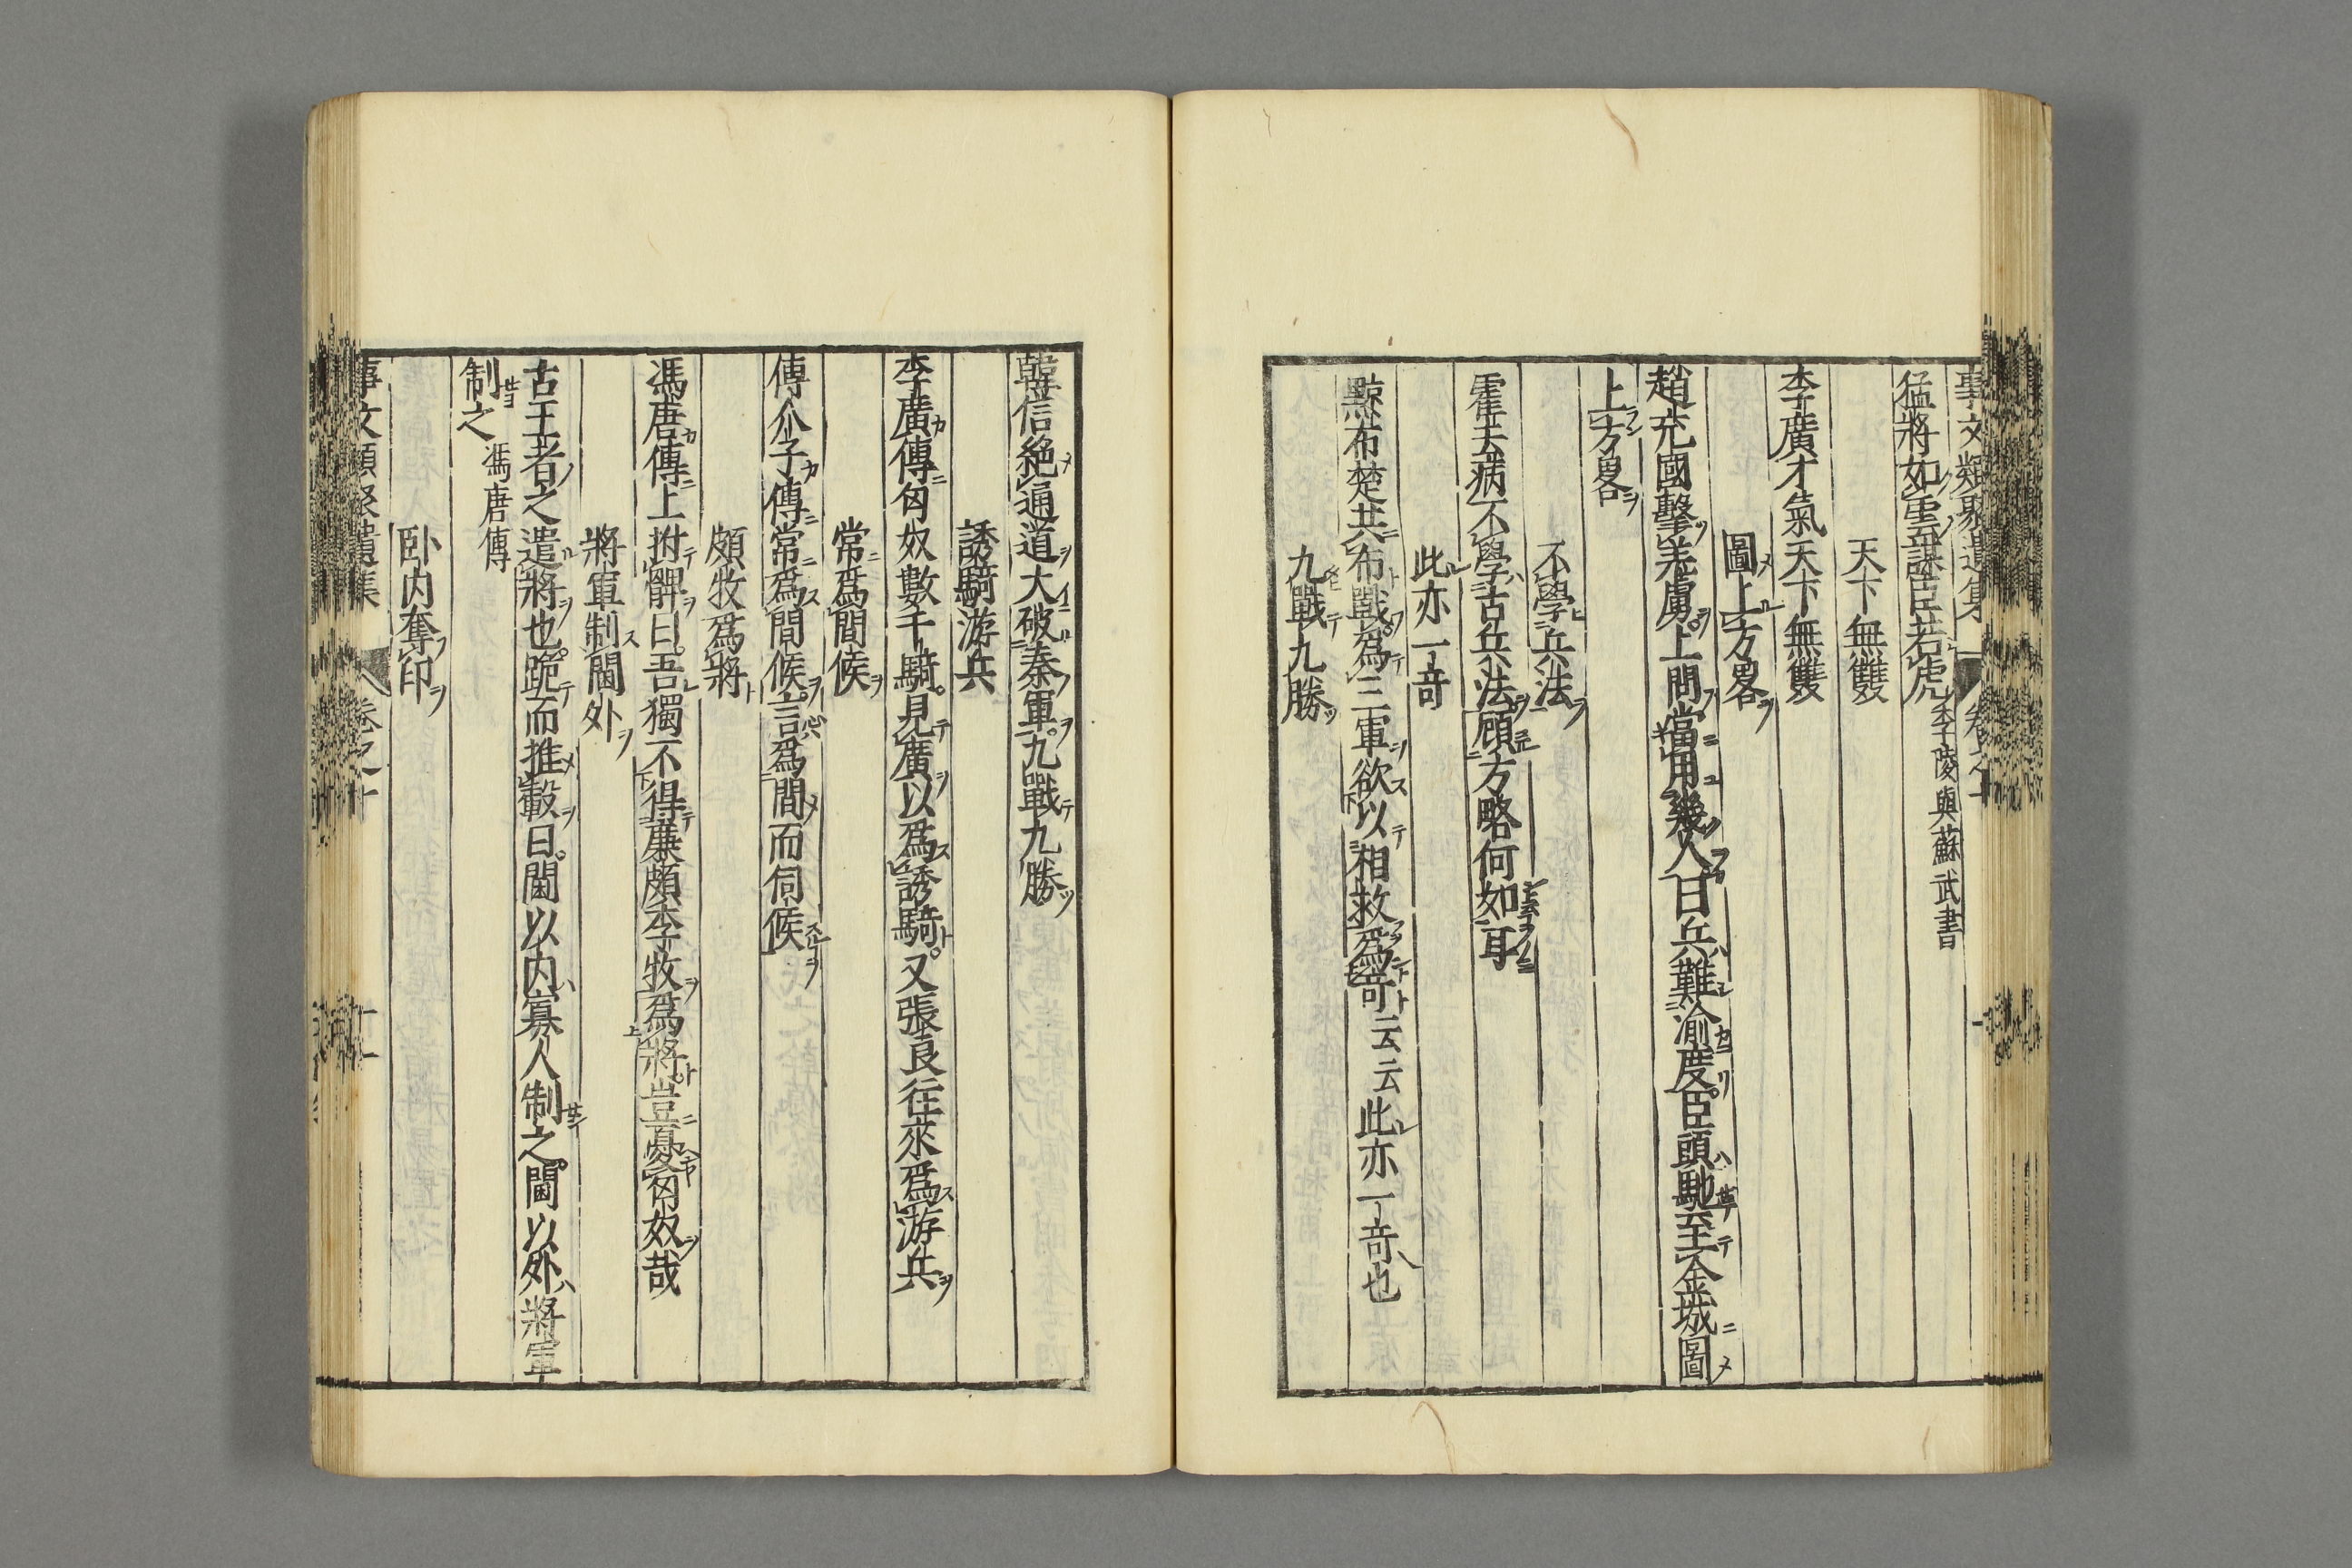 事文類聚遺集 卷之十
猛將如雲謀臣若虎 李陵與蘇武書
天下無雙
李廣才氣天下無雙
圖上方畧
趙充國擊羌虜上問當用幾人曰兵難渝度臣頭馳至金城圖
上方畧
不學兵法
霍去病不學古兵法顧方略何如耳
此亦一奇
黥布楚共布戰爲三軍欲以相救爲奇云云此亦一奇也
九戰九勝
韓信絶通道大破秦軍九戰九勝
誘騎游兵
李廣傳匈奴數千騎見廣以爲誘騎又張良往來爲游兵
常爲間候
傅介子傳常爲間候言爲間而伺候
頗牧爲將
馮唐傳上拊髀曰吾獨不得廉頗李牧爲將豈憂匈奴哉
將軍制閫外
古王者之遣將也跪而推轂曰閫以内寡人制之閫以外將軍
制之 馮唐傳
卧内奪印
事文類聚遺集 卷之十 十一